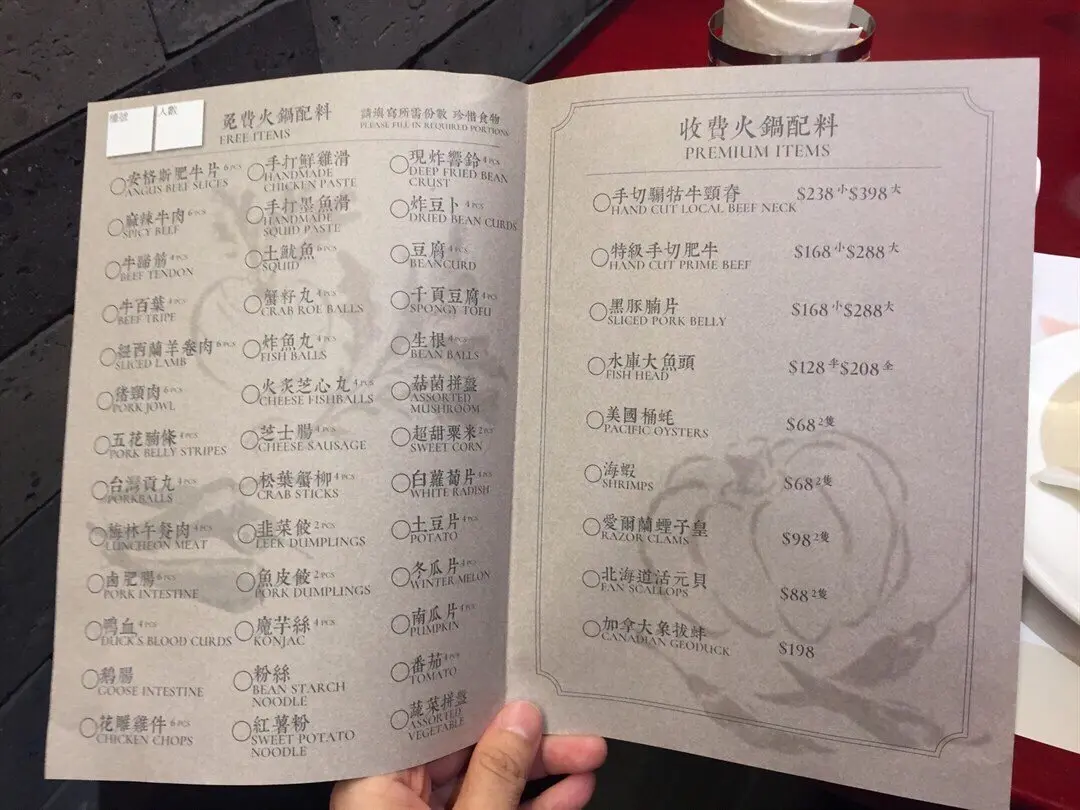 檯號
人數
免費火鍋配料
FREE ITEMS
請填寫所需份數 珍惜食物
PLEASE FILL IN REQUIRED PORTIONS
安格斯肥牛片 6 PCS
ANGUS BEEF SLICES
麻辣牛肉 6 PCS
SPICY BEEF
牛蹄筋 4 PCS
BEEF TENDON
牛百葉 4 PCS
BEEF TRIPE
紐西蘭羊卷肉 6 PCS
SLICED LAMB
豬頸肉 6 PCS
PORK JOWL
五花腩條 4 PCS
PORK BELLY STRIPES
台灣貢丸 4 PCS
PORKBALLS
梅林午餐肉 4 PCS
LUNCHEON MEAT
鹵肥腸 6 PCS
PORK INTESTINE
鴨血 4 PCS
DUCK'S BLOOD CURDS
鵝腸
GOOSE INTESTINE
花雕雞件 6 PCS
CHICKEN CHOPS
手打鮮雞滑
HANDMADE
CHICKEN PASTE
手打墨魚滑
HANDMADE
SQUID PASTE
土魷魚 6 PCS
SQUID
蟹籽丸 4 PCS
CRAB ROE BALLS
炸魚丸 4 PCS
FISH BALLS
火炙芝心丸 4 PCS
CHEESE FISHBALLS
芝士腸 4 PCS
CHEESE SAUSAGE
松葉蟹柳 4 PCS
CRAB STICKS
韭菜餃 2 PCS
LEEK DUMPLINGS
魚皮餃 2 PCS
PORK DUMPLINGS
魔芋絲 4 PCS
KONJAC
粉絲
BEAN STARCH
NOODLE
紅薯粉
SWEET POTATO
NOODLE
現炸響鈴 4 PCS
DEEP FRIED BEAN
CRUST
炸豆卜 4 PCS
DRIED BEAN CURDS
豆腐 4 PCS
BEANCURD
千頁豆腐 4 PCS
SPONGY TOFU
生根 4 PCS
BEAN BALLS
菇菌拼盤
ASSORTED
MUSHROOM
超甜粟米 2 PCS
SWEET CORN
白蘿蔔片 4 PCS
WHITE RADISH
土豆片 4 PCS
POTATO
冬瓜片 4 PCS
WINTER MELON
南瓜片 4 PCS
PUMPKIN
番茄 4 PCS
TOMATO
蔬菜拼盤
ASSORTED
VEGETABLE
收費火鍋配料
PREMIUM ITEMS
手切騸牯牛頸脊 $238 小 $398 大
HAND CUT LOCAL BEEF NECK
特級手切肥牛 $168 小 $288 大
HAND CUT PRIME BEEF
黑豚腩片 $168 小 $288 大
SLICED PORK BELLY
水庫大魚頭 $128 半 $208 全
FISH HEAD
美國桶蚝 $68 2隻
PACIFIC OYSTERS
海蝦 $68 2隻
SHRIMPS
愛爾蘭蟶子皇 $98 2隻
RAZOR CLAMS
北海道活元貝 $88 2隻
FAN SCALLOPS
加拿大象拔蚌 $198
CANADIAN GEODUCK